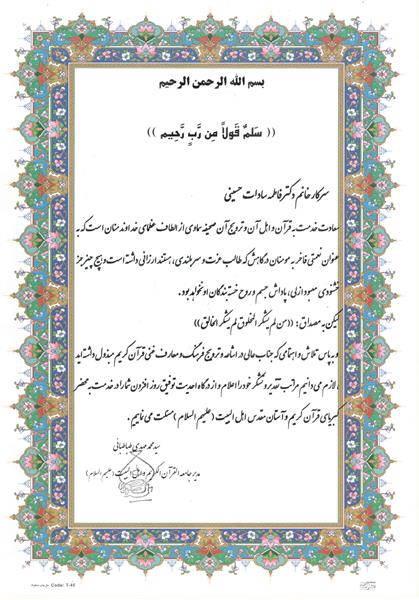 بسم الله الرحمن الرحیم
(( سَلٰمٌ قَولاً مِن رَبٍ رَّحِیم ))
سرکار خانم دکتر فاطمه سادات حسینی
سعادت خدمت به قرآن و اهل آن و ترویج آن صحیفه سماوی از الطاف عظمای خداوند منان است که به
عنوان نعمتی فاخر به مومنان درگاهش که طالب عزت و سربلندی، هستند ارزانی داشته است و هیچ چیز جز
خشنودی معبود ازلی، پاداش جسم و روح خسته بندگان او نخواهد بود.
لیکن به مصداق: ((من لم یشکر المخلوق لم یشکر الخالق))
و به پاس تلاش و اهتمامی که جناب عالی در اشاعه و ترویج فرهنگ و معارف غنی قرآن کریم مبذول داشته اید
، لازم می دانیم مراتب تقدیر و تشکر خود را اعلام و از درگاه احدیت توفیق روز افزون شما را در خدمت به محضر
کبریای قرآن کریم و آستان مقدس اهل البیت (علیهم السلام) مسئلت می نماییم .
سید محمد مهدی طباطبائی
مدیر جامعه القرآن الکریم و اهل البیت (علیهم السلام)
Code: T-40